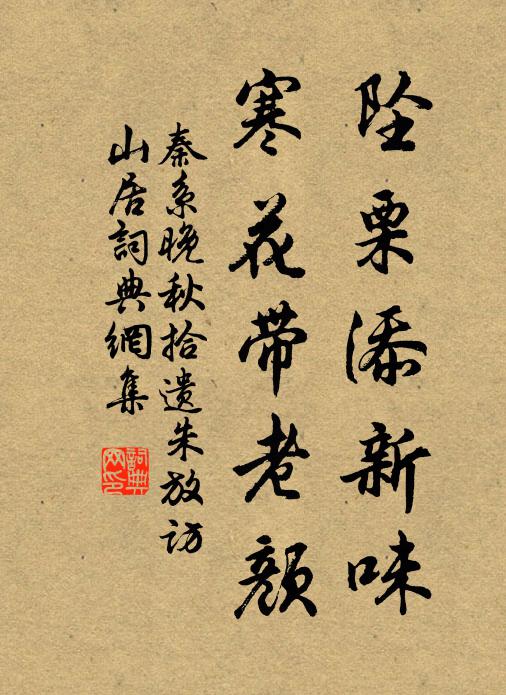 坠栗添新味
寒花带老颜
秦系晚秋拾遗朱放访
山居詞典網集
詞典网印